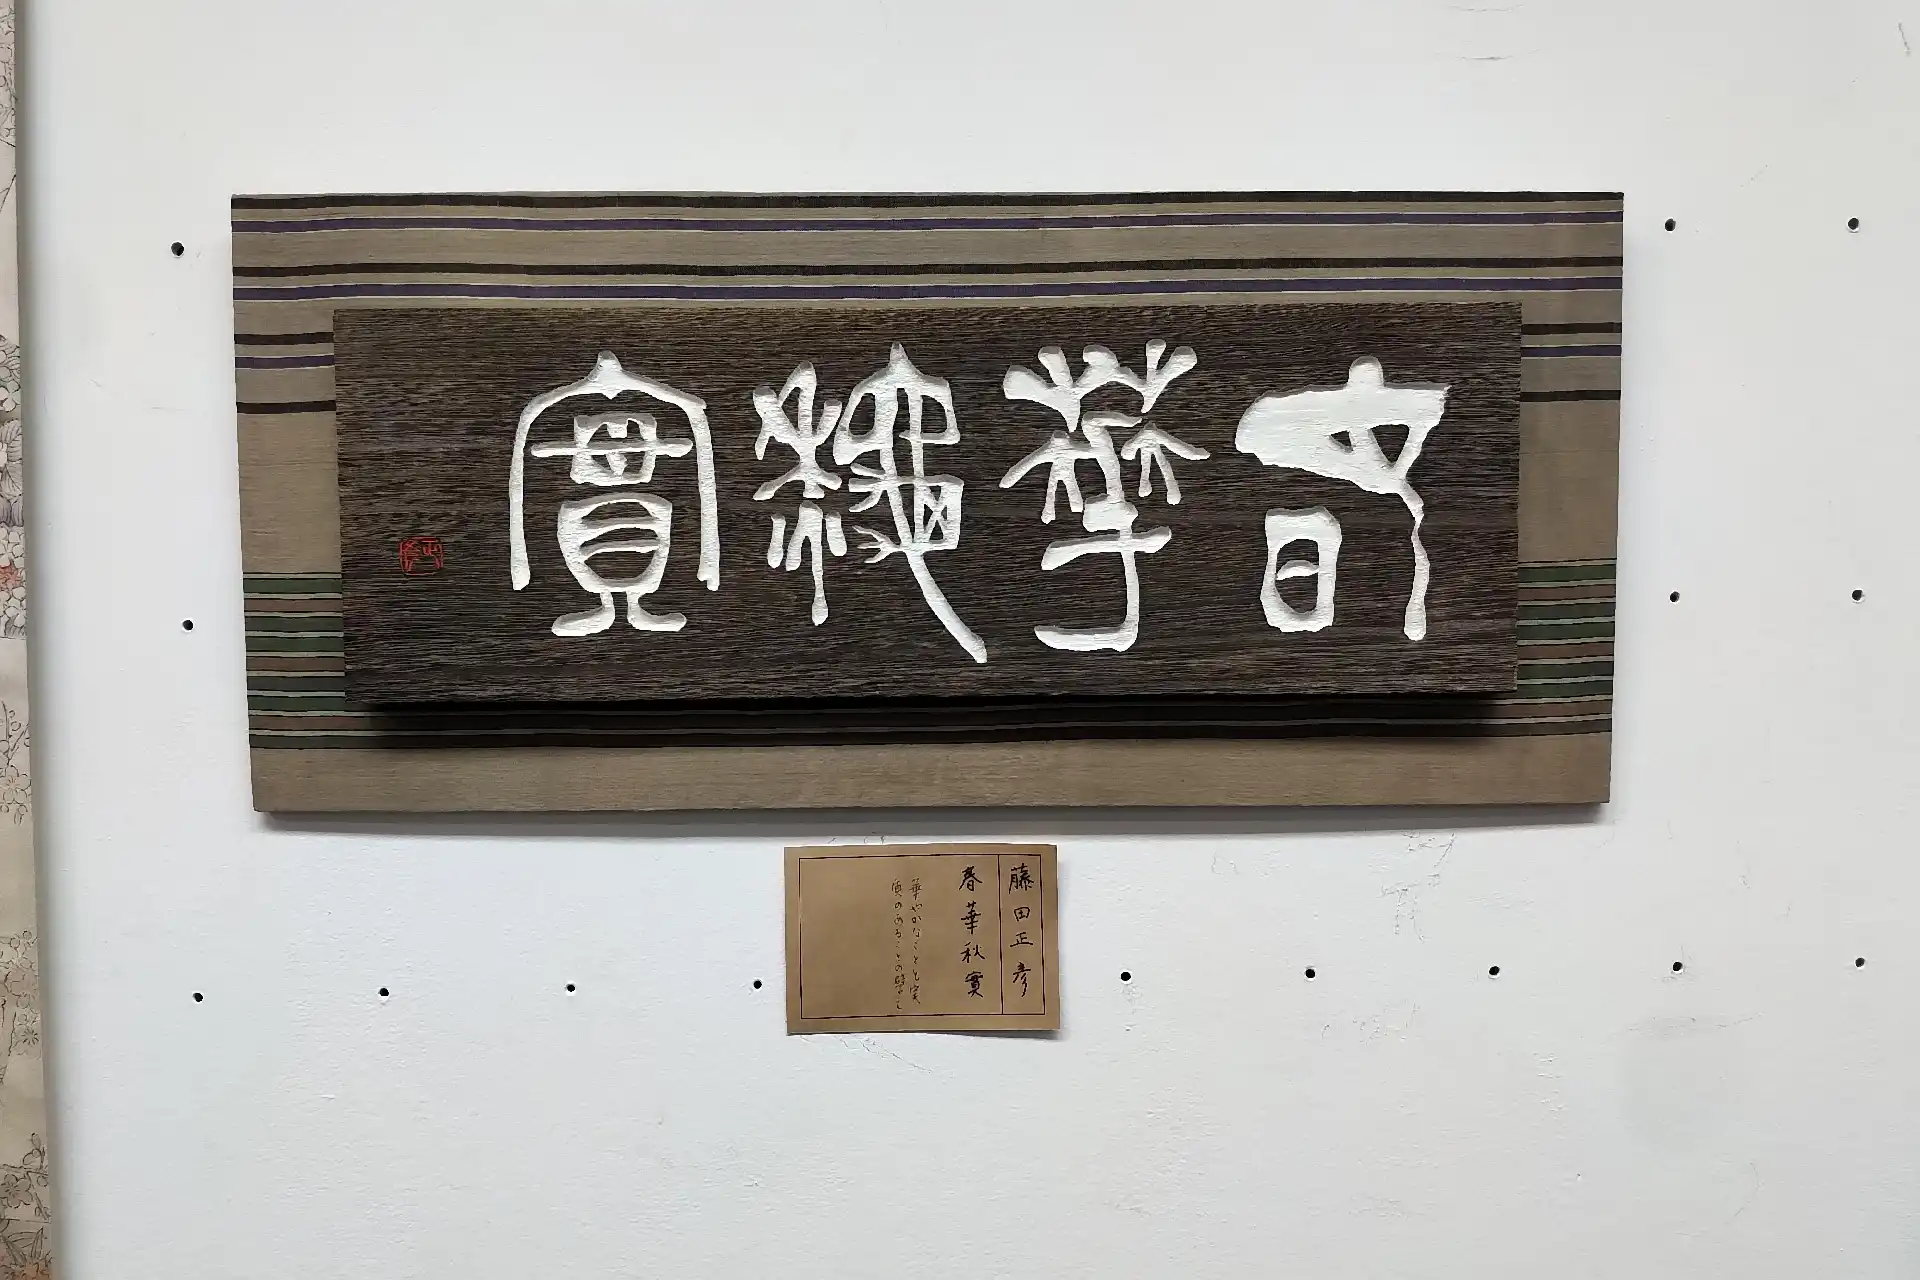 春華秋實
藤田正彦
春華秋實
華やかなことと実
質のあることの譬え